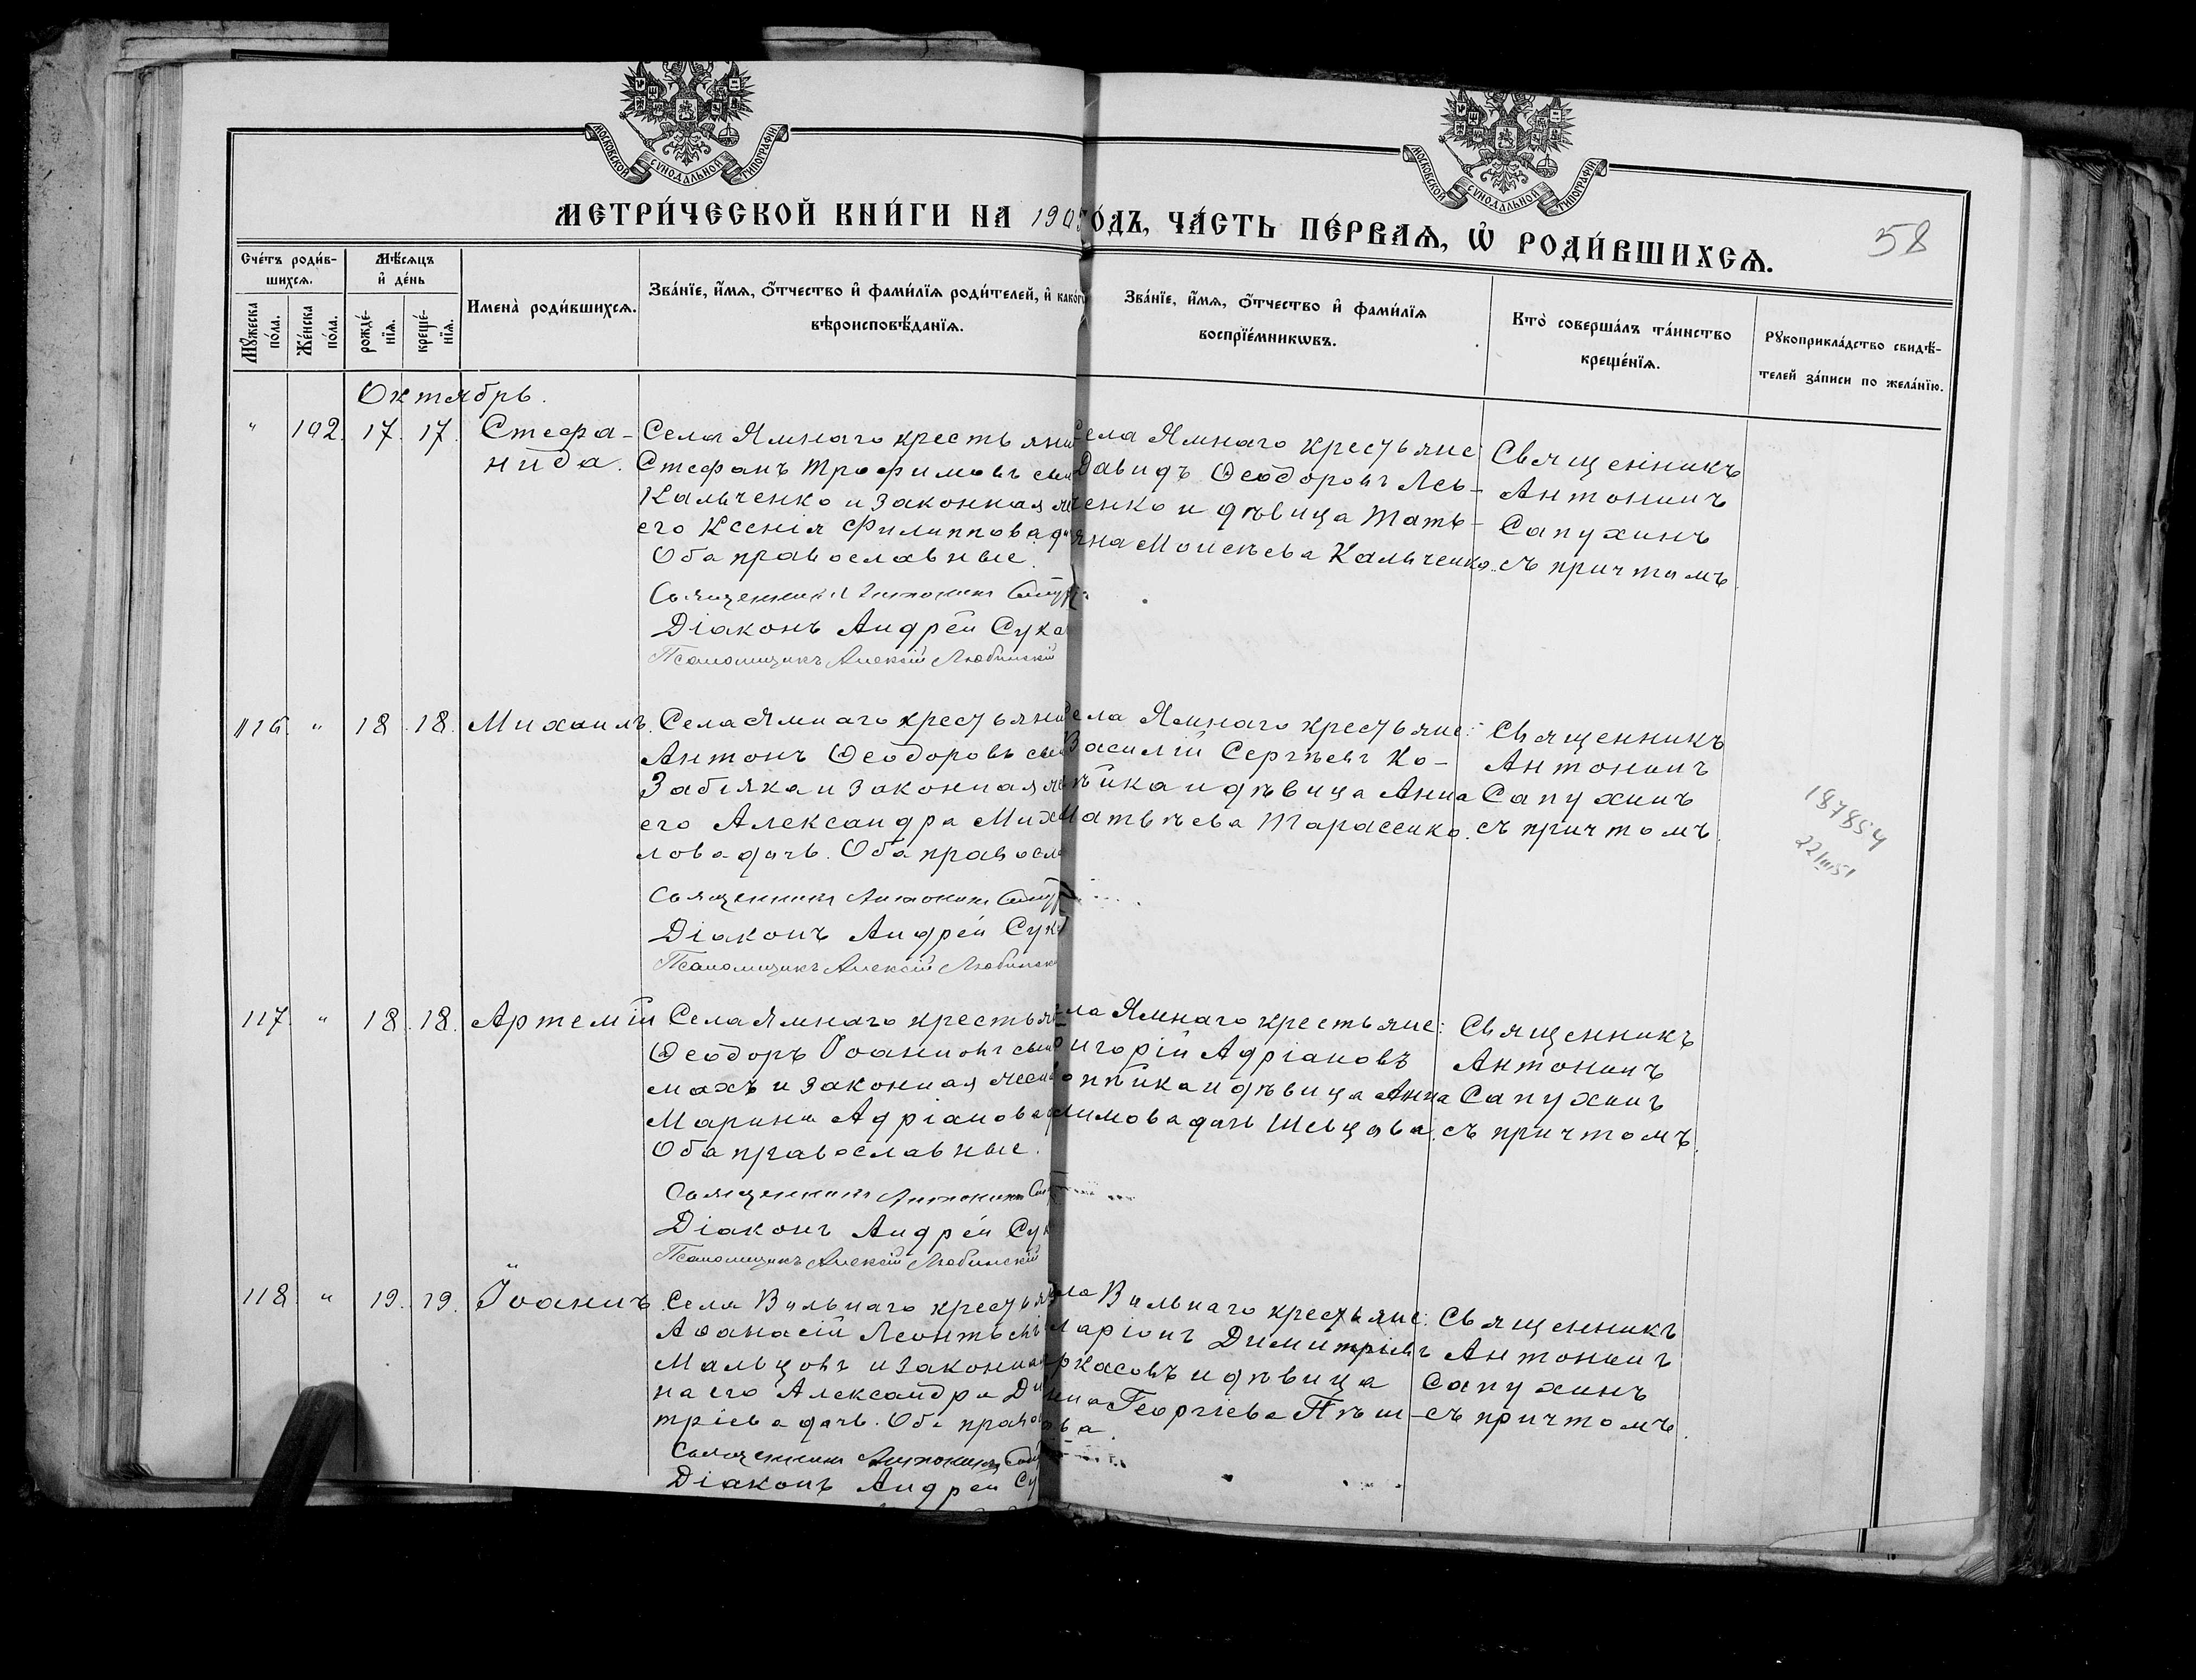 МОСКОВСКОЙ СѴНОДАЛЬНОЙ ТИПОГРАФІИ
МОСКОВСКОЙ СѴНОДАЛЬНОЙ ТИПОГРАФІИ
МЕТРИ́ЧЕСКОЙ КНИ́ГИ НА 1905 О́ДЪ, ЧА́СТЬ ПЕ́РВАѦ, Ѡ҆ РОДИ́ВШИХСѦ.
58
Сче́тъ роди́в-
шихсѧ.
Мꙋ́жеска по́ла.
Же́нска по́ла.
Мѣ́сѧцъ
и҆ де́нь
рожде́-
нїѧ.
креще́-
нїѧ.
Имена̀ роди́вшихсѧ.
Зва́нїе, и҆́мѧ, ѻ҆́тчество и҆ фами́лїѧ роди́телей, и҆ како́гѡ
вѣроисповѣ́данїѧ.
Зва́нїе, и҆́мѧ, ѻ҆́тчество и҆ фами́лїѧ
воспрїе́мникѡвъ.
Кто̀ соверша́лъ та́инство
креще́нїѧ.
Рꙋкоприкла́дство свидѣ́-
телей за́писи по жела́нїю.
Октябрь.
" 102. 17. 17. Стефа-
нида.
Села Ямнаго крестьянин
Стефанъ Трофимовъ сын
Кальченко и законная же
его Ксенія Филиппова д
Оба православные.
Священникъ Антонинъ Сапух
Діаконъ Андрей Сука
Псаломщикъ Алексій Любинскій
Села Ямнаго крестьяне
Давидъ Ѳеодоровъ Лев-
ченко и дѣвица Тать-
яна Моисѣева Кальченко.
Священникъ
Антонинъ
Сапухинъ
съ причтомъ.
116. " 18. 18. Михаилъ.
Села Ямнаго крестьянин
Антонъ Ѳеодоровъ сын
Забіяка и законная же
его Александра Миха
лова дочь. Оба правосл
Священникъ Антонинъ Сапух
Діаконъ Андрей Сука
Псаломщикъ Алексій Любински
Села Ямнаго крестьяне:
Василій Сергѣевъ Ко-
пѣйка и дѣвица Анна
Матвѣева Тарасенко.
Священникъ
Антонинъ
Сапухинъ
съ причтомъ.
187854
22/III 51
117. " 18. 18. Артемій
Села Ямнаго крестьян
Ѳеодоръ Іоанновъ сын
махъ и законная жена
Марина Адріанова д
Оба православные.
Священникъ Антонинъ Сап
Діаконъ Андрей Сук
Псаломщикъ Алексій Любинскій
ла Ямнаго крестьяне:
игорій Адріановъ
опѣйка и дѣвица Анна
имова дочь Шевцова.
Священникъ
Антонинъ
Сапухинъ
съ причтомъ.
118. " 19. 19. Іоаннъ.
Села Вольнаго крестьян
Аѳанасій Леонтьевъ
Мальцовъ и законная
на его Александра Ди
тріева дочь. Оба право
Священникъ Антонинъ Сап
Діаконъ Андрей Су
ла Вольнаго крестьяне:
ларіонъ Димитріевъ
ркасовъ и дѣвица
нна Георгіева Пѣш-
ва.
Священникъ
Антонинъ
Сапухинъ
съ причтомъ.